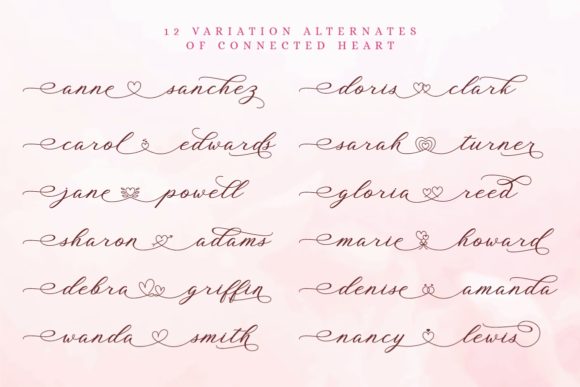 12 VARIATION ALTERNATES
OF CONNECTED HEART
anne sanchez
carol edwards
jane powell
sharon adams
debra griffin
wanda smith
doris clark
sarah turner
gloria reed
marie howard
denise amanda
nancy lewis